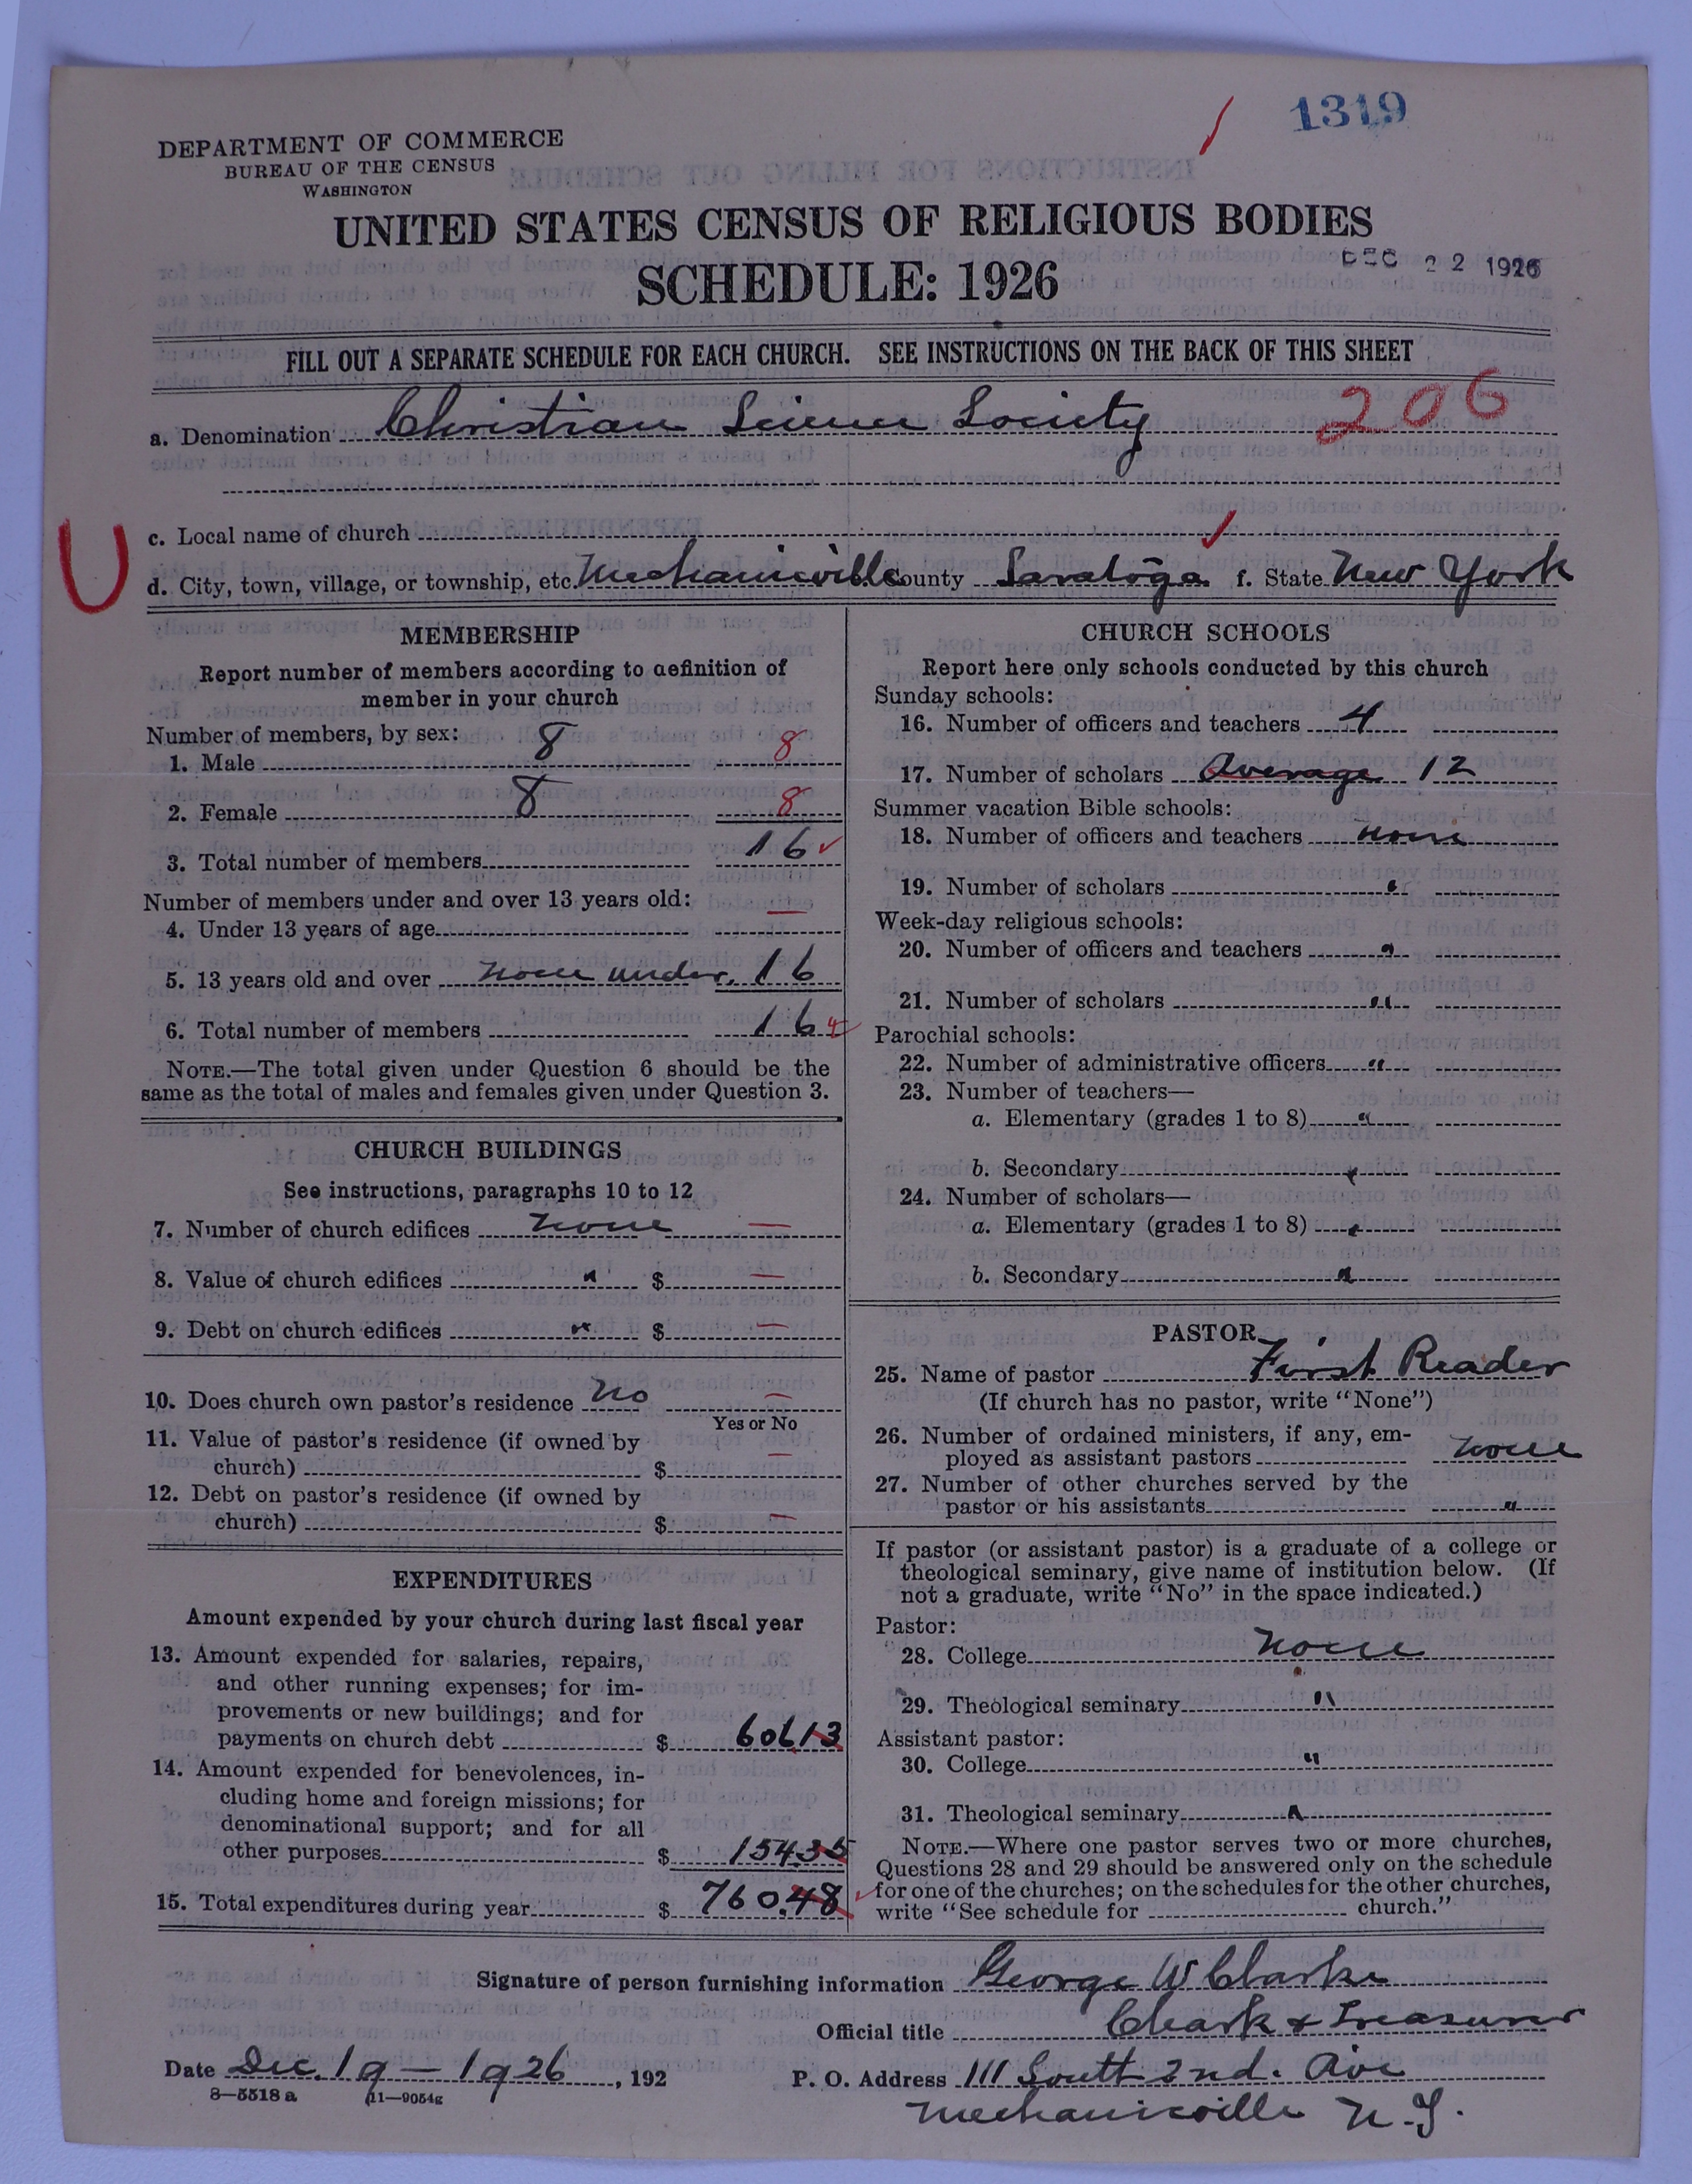 1319
DEPARTMENT OF COMMERCE
BUREAU OF THE CENSUS
WASHINGTON
UNITED STATES CENSUS OF RELIGIOUS BODIES
SCHEDULE: 1926
DEC 22 1926
FILL OUT A SEPARATE SCHEDULE FOR EACH CHURCH. SEE INSTRUCTIONS ON THE BACK OF THIS SHEET
a. Denomination Christian Science Society 206
U
c. Local name of church
d. City, town, village, or township, etc. Mechanicville County Saratoga f. State New York
MEMBERSHIP
Report number of members according to definition of
member in your church
Number of members, by sex:
1. Male 8 8
2. Female 8 8
3. Total number of members 16
Number of members under and over 13 years old:
4. Under 13 years of age —
5. 13 years old and over none under. 16
6. Total number of members 16
NOTE.—The total given under Question 6 should be the
same as the total of males and females given under Question 3.
CHURCH BUILDINGS
See instructions, paragraphs 10 to 12
7. Number of church edifices none —
8. Value of church edifices " $ —
9. Debt on church edifices " $ —
10. Does church own pastor's residence No —
Yes or No
11. Value of pastor's residence (if owned by
church) $ —
12. Debt on pastor's residence (if owned by
church) $ —
EXPENDITURES
Amount expended by your church during last fiscal year
13. Amount expended for salaries, repairs,
and other running expenses; for im-
provements or new buildings; and for
payments on church debt $ 606.13
14. Amount expended for benevolences, in-
cluding home and foreign missions; for
denominational support; and for all
other purposes $ 154.35
15. Total expenditures during year $ 760.48
CHURCH SCHOOLS
Report here only schools conducted by this church
Sunday schools:
16. Number of officers and teachers 4
17. Number of scholars Average 12
Summer vacation Bible schools:
18. Number of officers and teachers none
19. Number of scholars "
Week-day religious schools:
20. Number of officers and teachers "
21. Number of scholars "
Parochial schools:
22. Number of administrative officers "
23. Number of teachers—
a. Elementary (grades 1 to 8) "
b. Secondary "
24. Number of scholars—
a. Elementary (grades 1 to 8) "
b. Secondary "
PASTOR
25. Name of pastor First Reader
(If church has no pastor, write "None")
26. Number of ordained ministers, if any, em-
ployed as assistant pastors none
27. Number of other churches served by the
pastor or his assistants "
If pastor (or assistant pastor) is a graduate of a college or
theological seminary, give name of institution below. (If
not a graduate, write "No" in the space indicated.)
Pastor:
28. College none
29. Theological seminary "
Assistant pastor:
30. College "
31. Theological seminary "
NOTE.—Where one pastor serves two or more churches,
Questions 28 and 29 should be answered only on the schedule
for one of the churches; on the schedules for the other churches,
write "See schedule for church."
Signature of person furnishing information George W Clarke
Official title Clark & Treasurer
Date Dec. 19 - 1926, 192
P. O. Address 111 South 2nd. Ave
Mechanicville N.Y.
8—5518 a 11—9054g